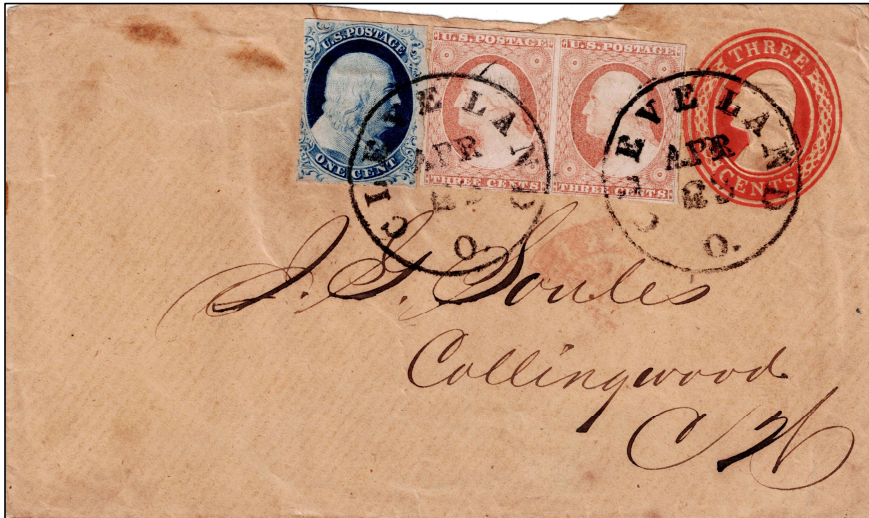 U.S. POSTAGE
ONE CENT
U.S. POSTAGE
THREE CENTS
U.S. POSTAGE
THREE CENTS
THREE
CENTS
CLEVELAND
APR
O.
CLEVELAND
APR
O.
J. G. Soules
Collingwood
C W